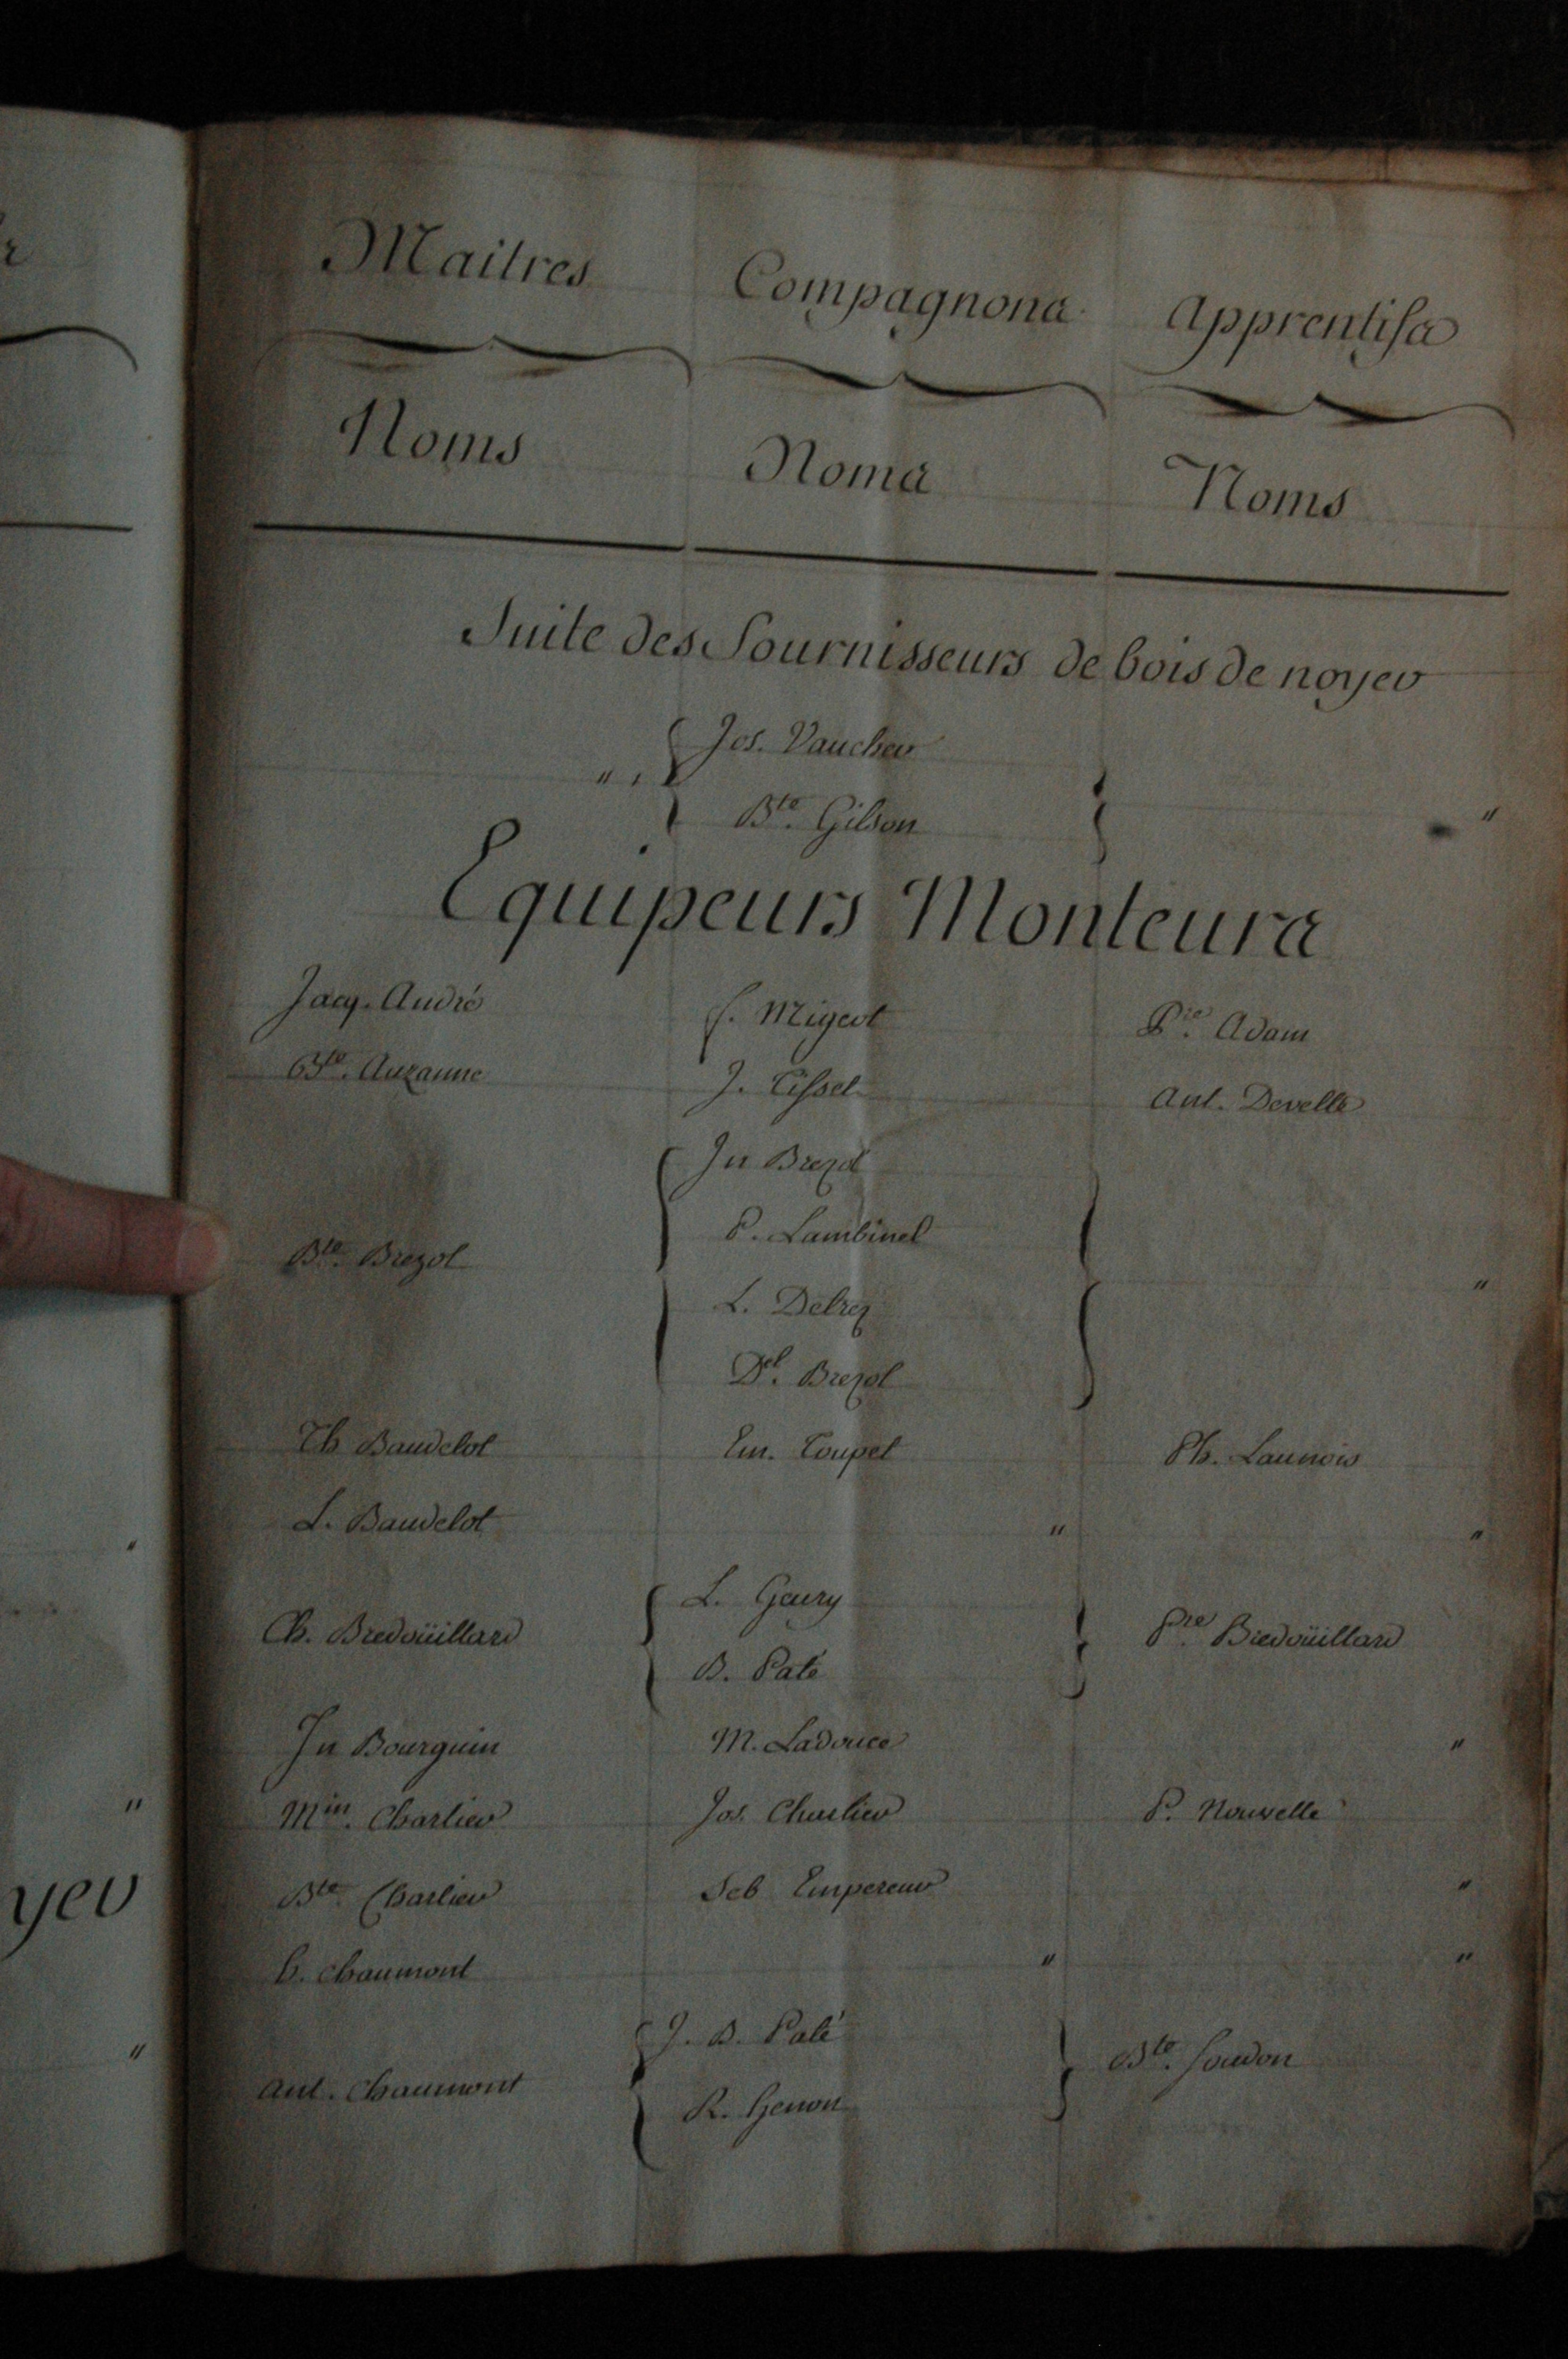 Maitres Compagnons Apprentifs
Noms Noms Noms
Suite des Fournisseurs de bois de noyer
Jos. Vaucher
" "
Bte. Gilson "
Equipeurs Monteurs
Jacq. André f. Migeot Pre. Adam
Bte. Auzanne J. Tissel Ant. Develle
Jn Brezol
P. Lambinet
Bte. Brezol "
L. Delrez
Dl. Brezol
Th Baudelot Em. Toupet Ph. Launois
L. Baudelot " "
L. Geury
Ch. Bredoüillard Pre Bredoüillard
B. Paté
Jn Bourguin M. Ladouce "
Min. Charlier Jos. Charlier P. Nouvelle
Bte. Charlier Seb Empereur "
h. chaumont " "
J. B. Paté
Ant. Chaumont Bte. foudon
R. Genon
yer